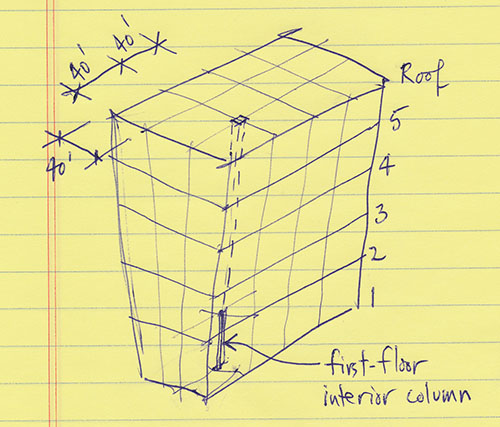 40'
40'
40'
Roof
5
4
3
2
1
first-floor
interior column